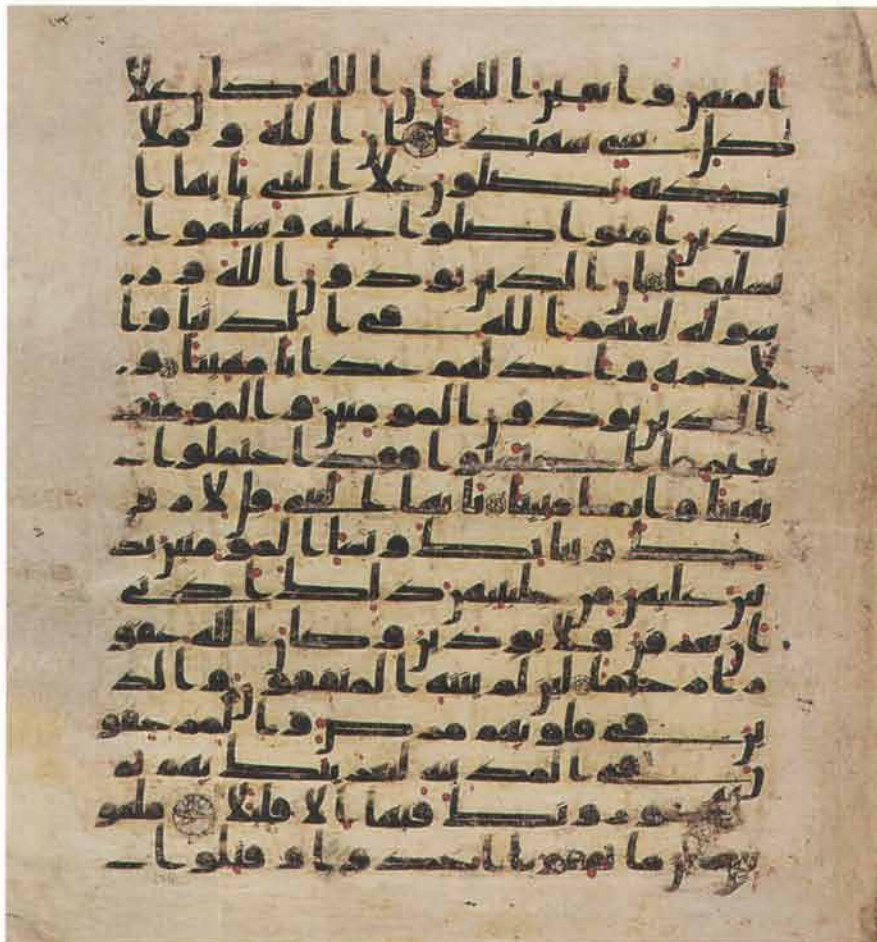 ايمنهن واتقين الله ان الله كان علا
كل شي شهيدا ان الله وملا
يكته يصلون علا النبي يايها ا
لذين امنوا صلوا عليه وسلموا
تسليما ان الذين يوذون الله ور
سوله لعنهم الله في الدنيا وا
لاخرة واعد لهم عذابا مهينا و
الذين يوذون المومنين والمومنت
بغير ما اكتسبوا فقد احتملوا
بهتنا واثما مبينا يايها النبي قل لازو
جك وبناتك ونسا المومنين يد
نين عليهن من جلبيبهن ذلك ادنى
ان يعرفن فلا يوذين وكان الله غفو
را رحيما لين لم ينته المنفقون والذ
ين في قلوبهم مرض والمرجفو
ن في المدينة لنغرينك بهم ثم
لا يجورونك فيها الا قليلا ملعو
نين اينما ثقفوا اخذوا وقتلوا